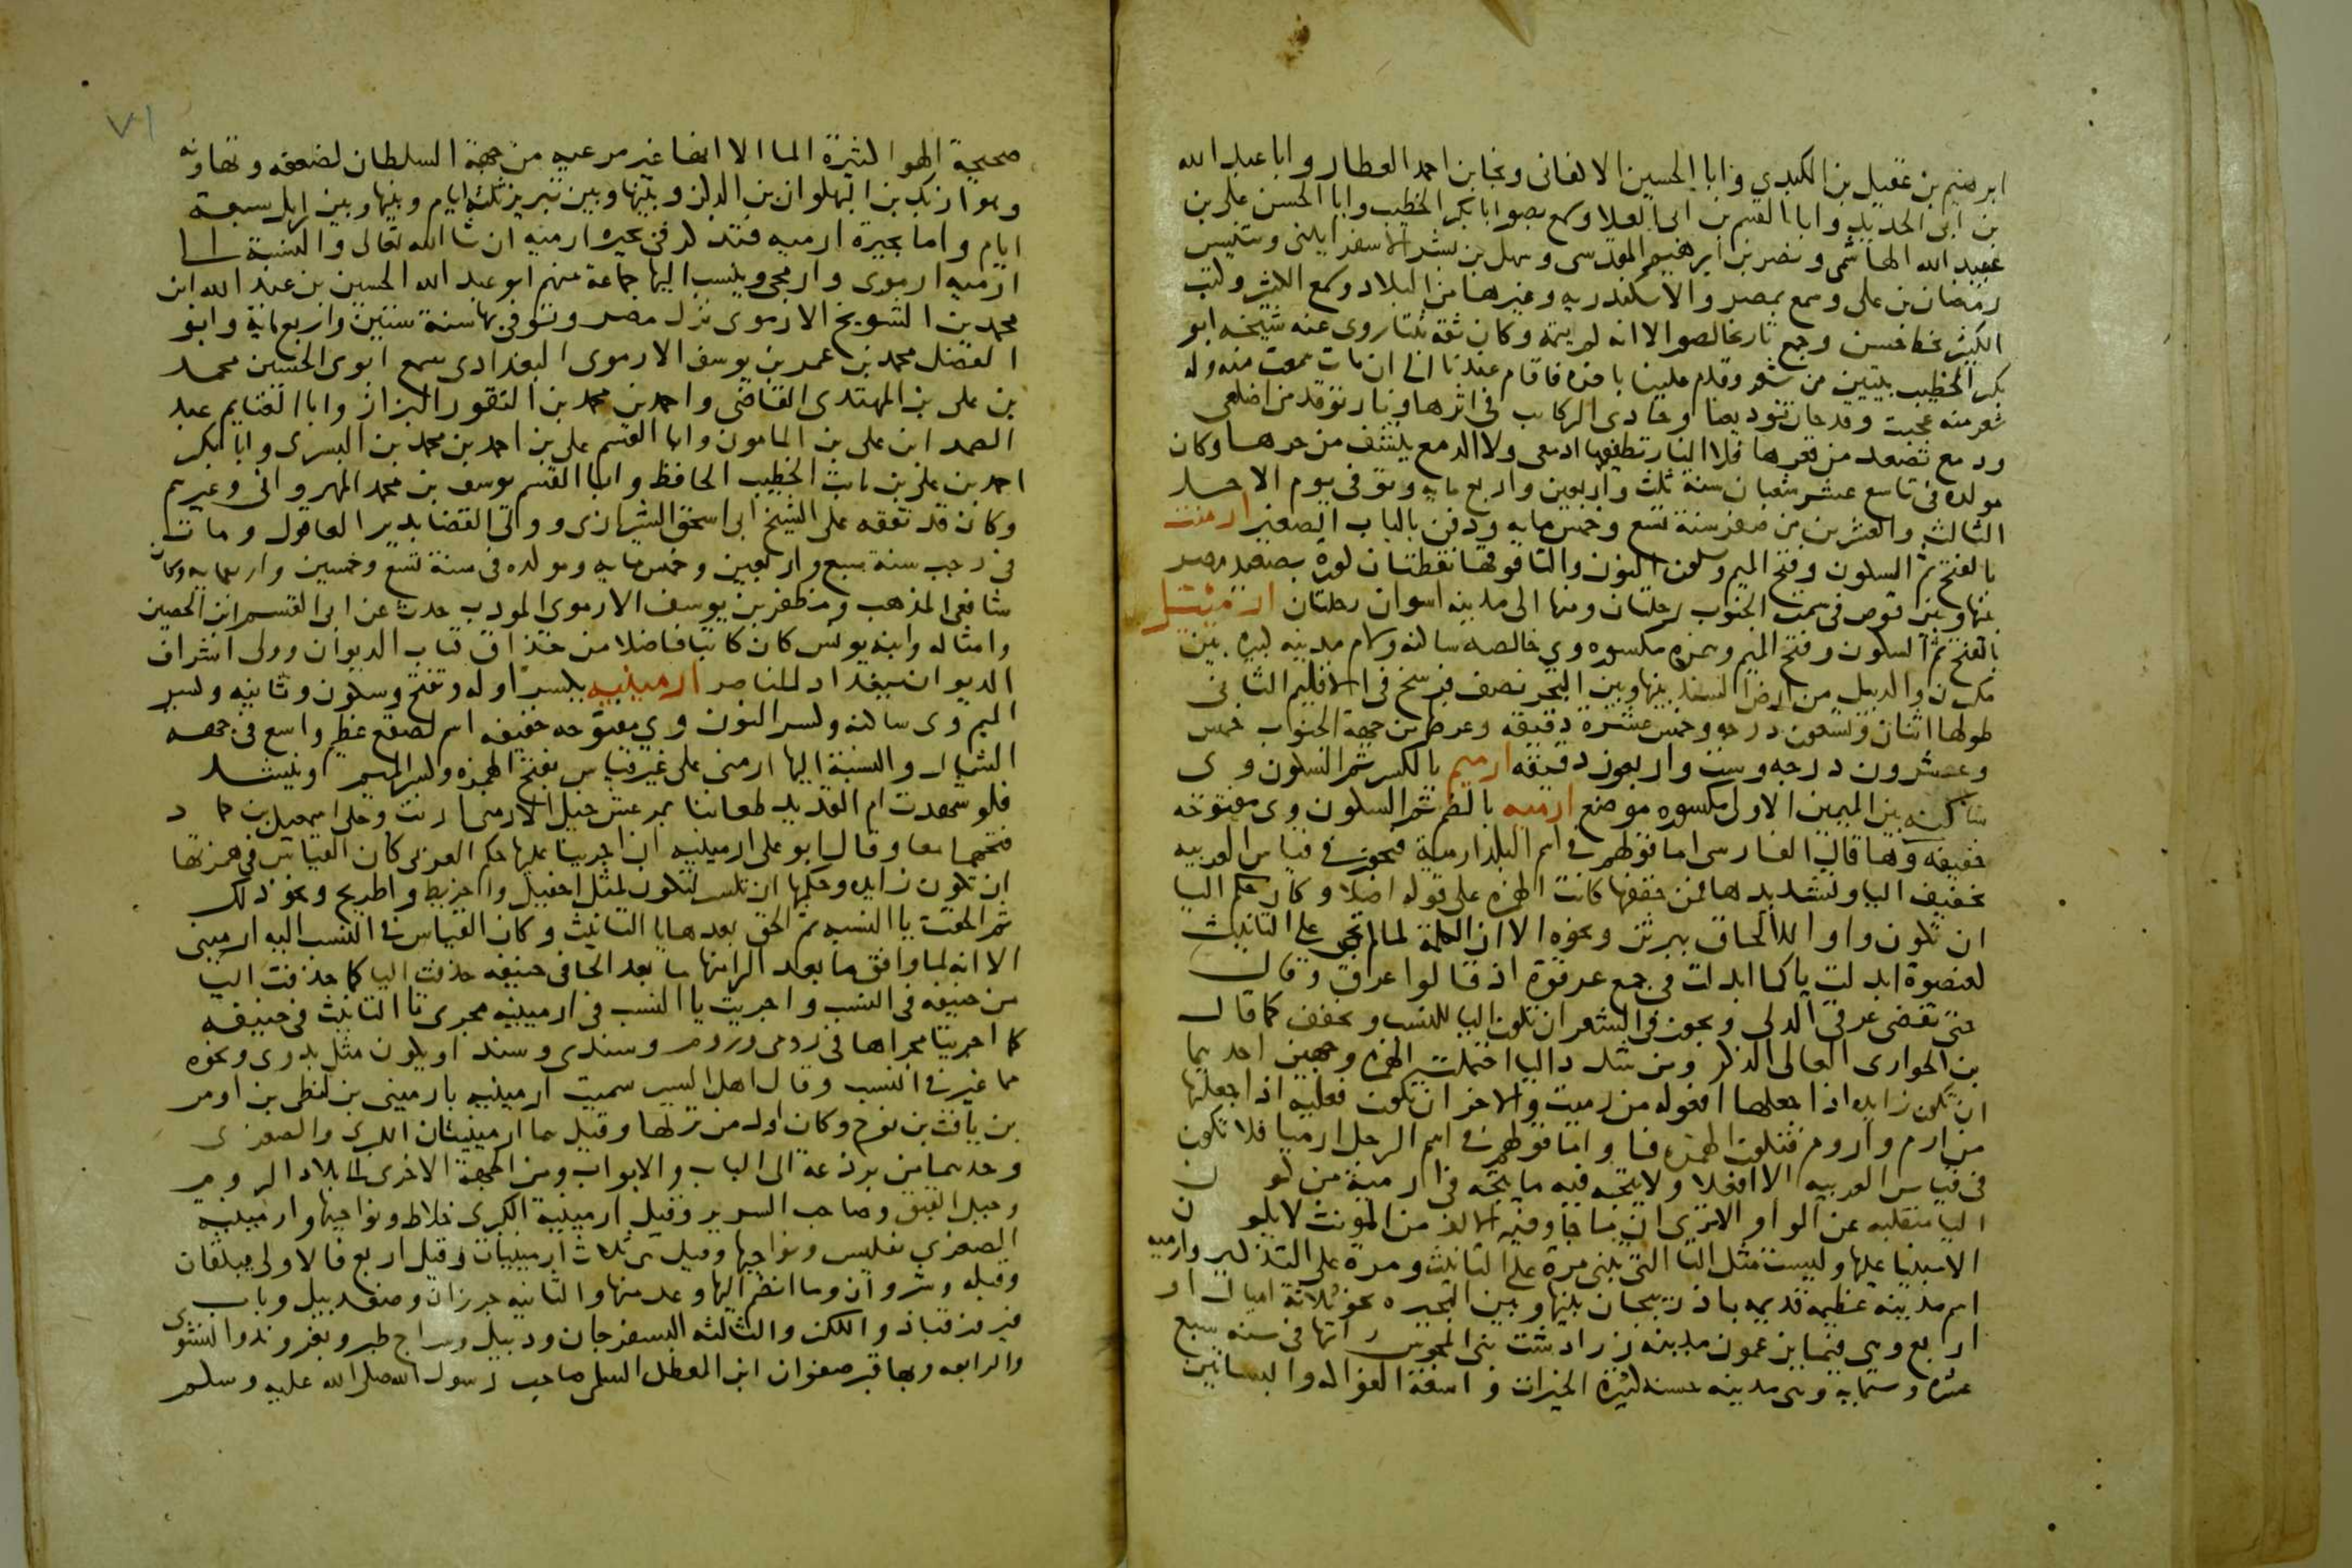 ابرهيم بن عقيل بن الكبدي وابا الحسين الالفانى ونجا بن احمد العطار وابا عبد الله
بن ابى الحديد وابا القسم بن ابى العلا وسمع بصور ابا بكر الخطيب وابا الحسن على بن
عبيد الله الهاشمى ونصر بن ابرهيم المقدسى وسهل بن بشر الاسفراينى وبتنيس
رمضان بن على وسمع بمصر والاسكندريه وغيرها من البلاد وسمع الكثير وكتب
الكثير بخط حسن وجمع تاريخا لصور الا انه لم يتمه وكان ثقة ثبتا روى عنه شيخه ابو
بكر الخطيب بيتين من شعر وقدم علينا باخره فاقام عندنا الى ان مات سمعت منه وله
شعر منه عجبت وقد حان توديعنا وحادى الركايب فى اثرها ونار توقد من اضلعى
ودمع تصعد من قعرها فلا النار تطفيها ادمعى ولا الدمع ينشف من حرها وكان
مولده فى تاسع عشر شعبان سنة ثلث واربعين واربع مايه وتوفى يوم الاحد
الثالث والعشرين من صفر سنة تسع وخمس مايه ودفن بالباب الصغير ارمنت
بالفتح ثم السكون وفتح الميم وسكون النون والتا فوقها نقطتان كورة بصعيد مصر
بينها وبين قوص فى سمت الجنوب رحلتان ومنها الى مدينه اسوان رحلتان ارمئيل
بالفتح ثم السكون وفتح الميم وهمزه مكسوره وى خالصه ساكنه ولام مدينه كبيره بين
مكران والديبل من ارض السند بينها وبين البحر نصف فرسخ فى الاقليم الثانى
طولها اثنان وتسعون درجه وخمس عشرة دقيقه وعرضها من جهة الجنوب خمس
وعشرون درجه وست واربعون دقيقه ارميم بالكسر ثم السكون وى
ساكنه بين الميمين الاولى مكسوره موضع ارميه بالضم ثم السكون وى مفتوحه
خفيفه وها قال الفارسى اما قولهم فى اسم البلد ارمية فيجوز فى قياس العربيه
تخفيف اليا وتشديدها فمن خففها كانت الهمزه على قوله اصلا وكان حكم اليا
ان تكون واوا للالحاق ببرثن ونحوه الا ان الكلمة لما لم تجى على التانيث
كعنصوة ابدلت يا كما ابدلت فى جمع عرقوة اذ قالوا عرق وقال
حتى تقضى عرقى الدلى ويجوز فى الشعر ان تكون اليا للنسب وتخفف كما قال
بن الحوارى العالى الذكر ومن شدد اليا احتملت الهمزه وجهين احديهما
ان تكون زايده اذا جعلها افعوله من رميت والاخر ان تكون فعليه اذا جعلتها
من ارم وأروم فتكون الهمزه فا واما قولهم فى اسم الرجل ارميا فلا تكون
فى قياس العربيه الا افعلا ولا يتجه فيه ما يتجه فى ارمية من كون
اليا منقلبه عن الواو الا ترى ان ما جا وفيه الالف من المونث لا يكون
الا مبنيا عليها وليست مثل التا التى تبنى مرة على التانيث ومرة على التذكير وارميه
اسم مدينه عظيمه قديمه باذربيجان بينها وبين البحيره نحو ثلاثة اميال او
اربع وهى فيما يزعمون مدينه زرادشت نبى المجوس رايتها فى سنه سبع
عشره وستمايه وهى مدينه حسنه كثيرة الخيرات واسعة الفواكه والبساتين
٧١
صحيحة الهوا كثيرة الما الا انها غير مرعيه من جهة السلطان لضعفه وتهاونه
وهو ازبك بن البهلوان بن الدكز وبينها وبين تبريز ثلثة ايام وبينها وبين اربل سبعة
ايام واما بحيرة ارميه فتذكر فى بحيره ارميه ان شا الله تعالى والنسبة الى
ارميه ارموى وارمجى وينسب اليها جماعة منهم ابو عبد الله الحسين بن عبد الله ابن
محمد بن الشويخ الارموى نزل مصر وتوفى بها سنة ستين واربع ماية وابو
الفضل محمد بن عمر بن يوسف الارموى البغدادى سمع ابوى الحسين محمد
بن على بن المهتدى القاضى واحمد بن محمد بن النقور البزاز وابا الغنايم عبد
الصمد ابن على بن المامون وابا القسم على بن احمد بن محمد بن البسرى وابا بكر
احمد بن على بن ثابت الخطيب الحافظ وابا القسم يوسف بن محمد المهروانى وغيرهم
وكان قد تفقه على الشيخ ابى اسحق الشيرازى وولى القضا بدير العاقول ومات
فى رجب سنة سبع واربعين وخمس مايه ومولده فى سنة تسع وخمسين واربعمايه وكان
شافعى المذهب ومظفر بن يوسف الارموى المودب حدث عن ابى القسم ابن الحصين
وامثاله وابنه يونس كان كاتبا فاضلا من حذاق كتاب الديوان وولى اشراف
الديوان ببغداد للناصر ارمينيه بكسر اوله وتفتح وسكون وثانيه وكسر
الميم وى ساكنه وكسر النون وى مفتوحه خفيفه اسم لصقع عظيم واسع فى جهة
الشمال والنسبة اليها ارمنى على غير قياس بفتح الهمزه وكسر الميم وينشد
فلو شهدت ام القديد طعاننا بمرعش خيل الارمنى ارنت وحكى اسمعيل بن حماد
فتحهما معا وقال ابو على ارمينيه اذا اجرينا عليها حكم العربى كان القياس فى همزتها
ان تكون زايده وحكمها ان تكسر لتكون مثل اجفيل واخريط واطريح ونحو ذلك
ثم الحقت يا النسبه ثم الحق بعدها ها التانيث وكان القياس فى النسب اليه ارمينى
الا انه لما وافق ما بعد الرا منها ما بعد الحا فى حنيفه حذفت اليا كما حذفت اليا
من حنيفه فى النسب واجريت يا النسب فى ارمينيه مجرى تا التانيث فى حنيفه
كما اجرينا مجراها فى رومى وروم وسندى وسند او يكون مثل بدوى ونحوه
مما غير فى النسب وقال اهل السير سميت ارمينيه بارمينى بن لنطى بن اومر
بن يافث بن نوح وكان اول من نزلها وقيل هما ارمينيتان الكبرى والصغرى
وحديهما من برذعة الى الباب والابواب ومن الجهة الاخرى الى بلاد الروم
وجبل القبق وصاحب السرير وقيل ارمينية الكبرى خلاط ونواحيها وارمينية
الصغرى تفليس ونواحيها وقيل هى ثلاث ارمينيات وقيل اربع فالاولى بيلقان
وقبله وشروان وما انضم اليها وعد منها والثانيه جرزان وصغدبيل وباب
فيروز قباذ واللكز والثالثه البسفرجان ودبيل وسراج طير وبغروند والنشوى
والرابعه وبها قبر صفوان ابن المعطل السلمى صاحب رسول الله صلى الله عليه وسلم